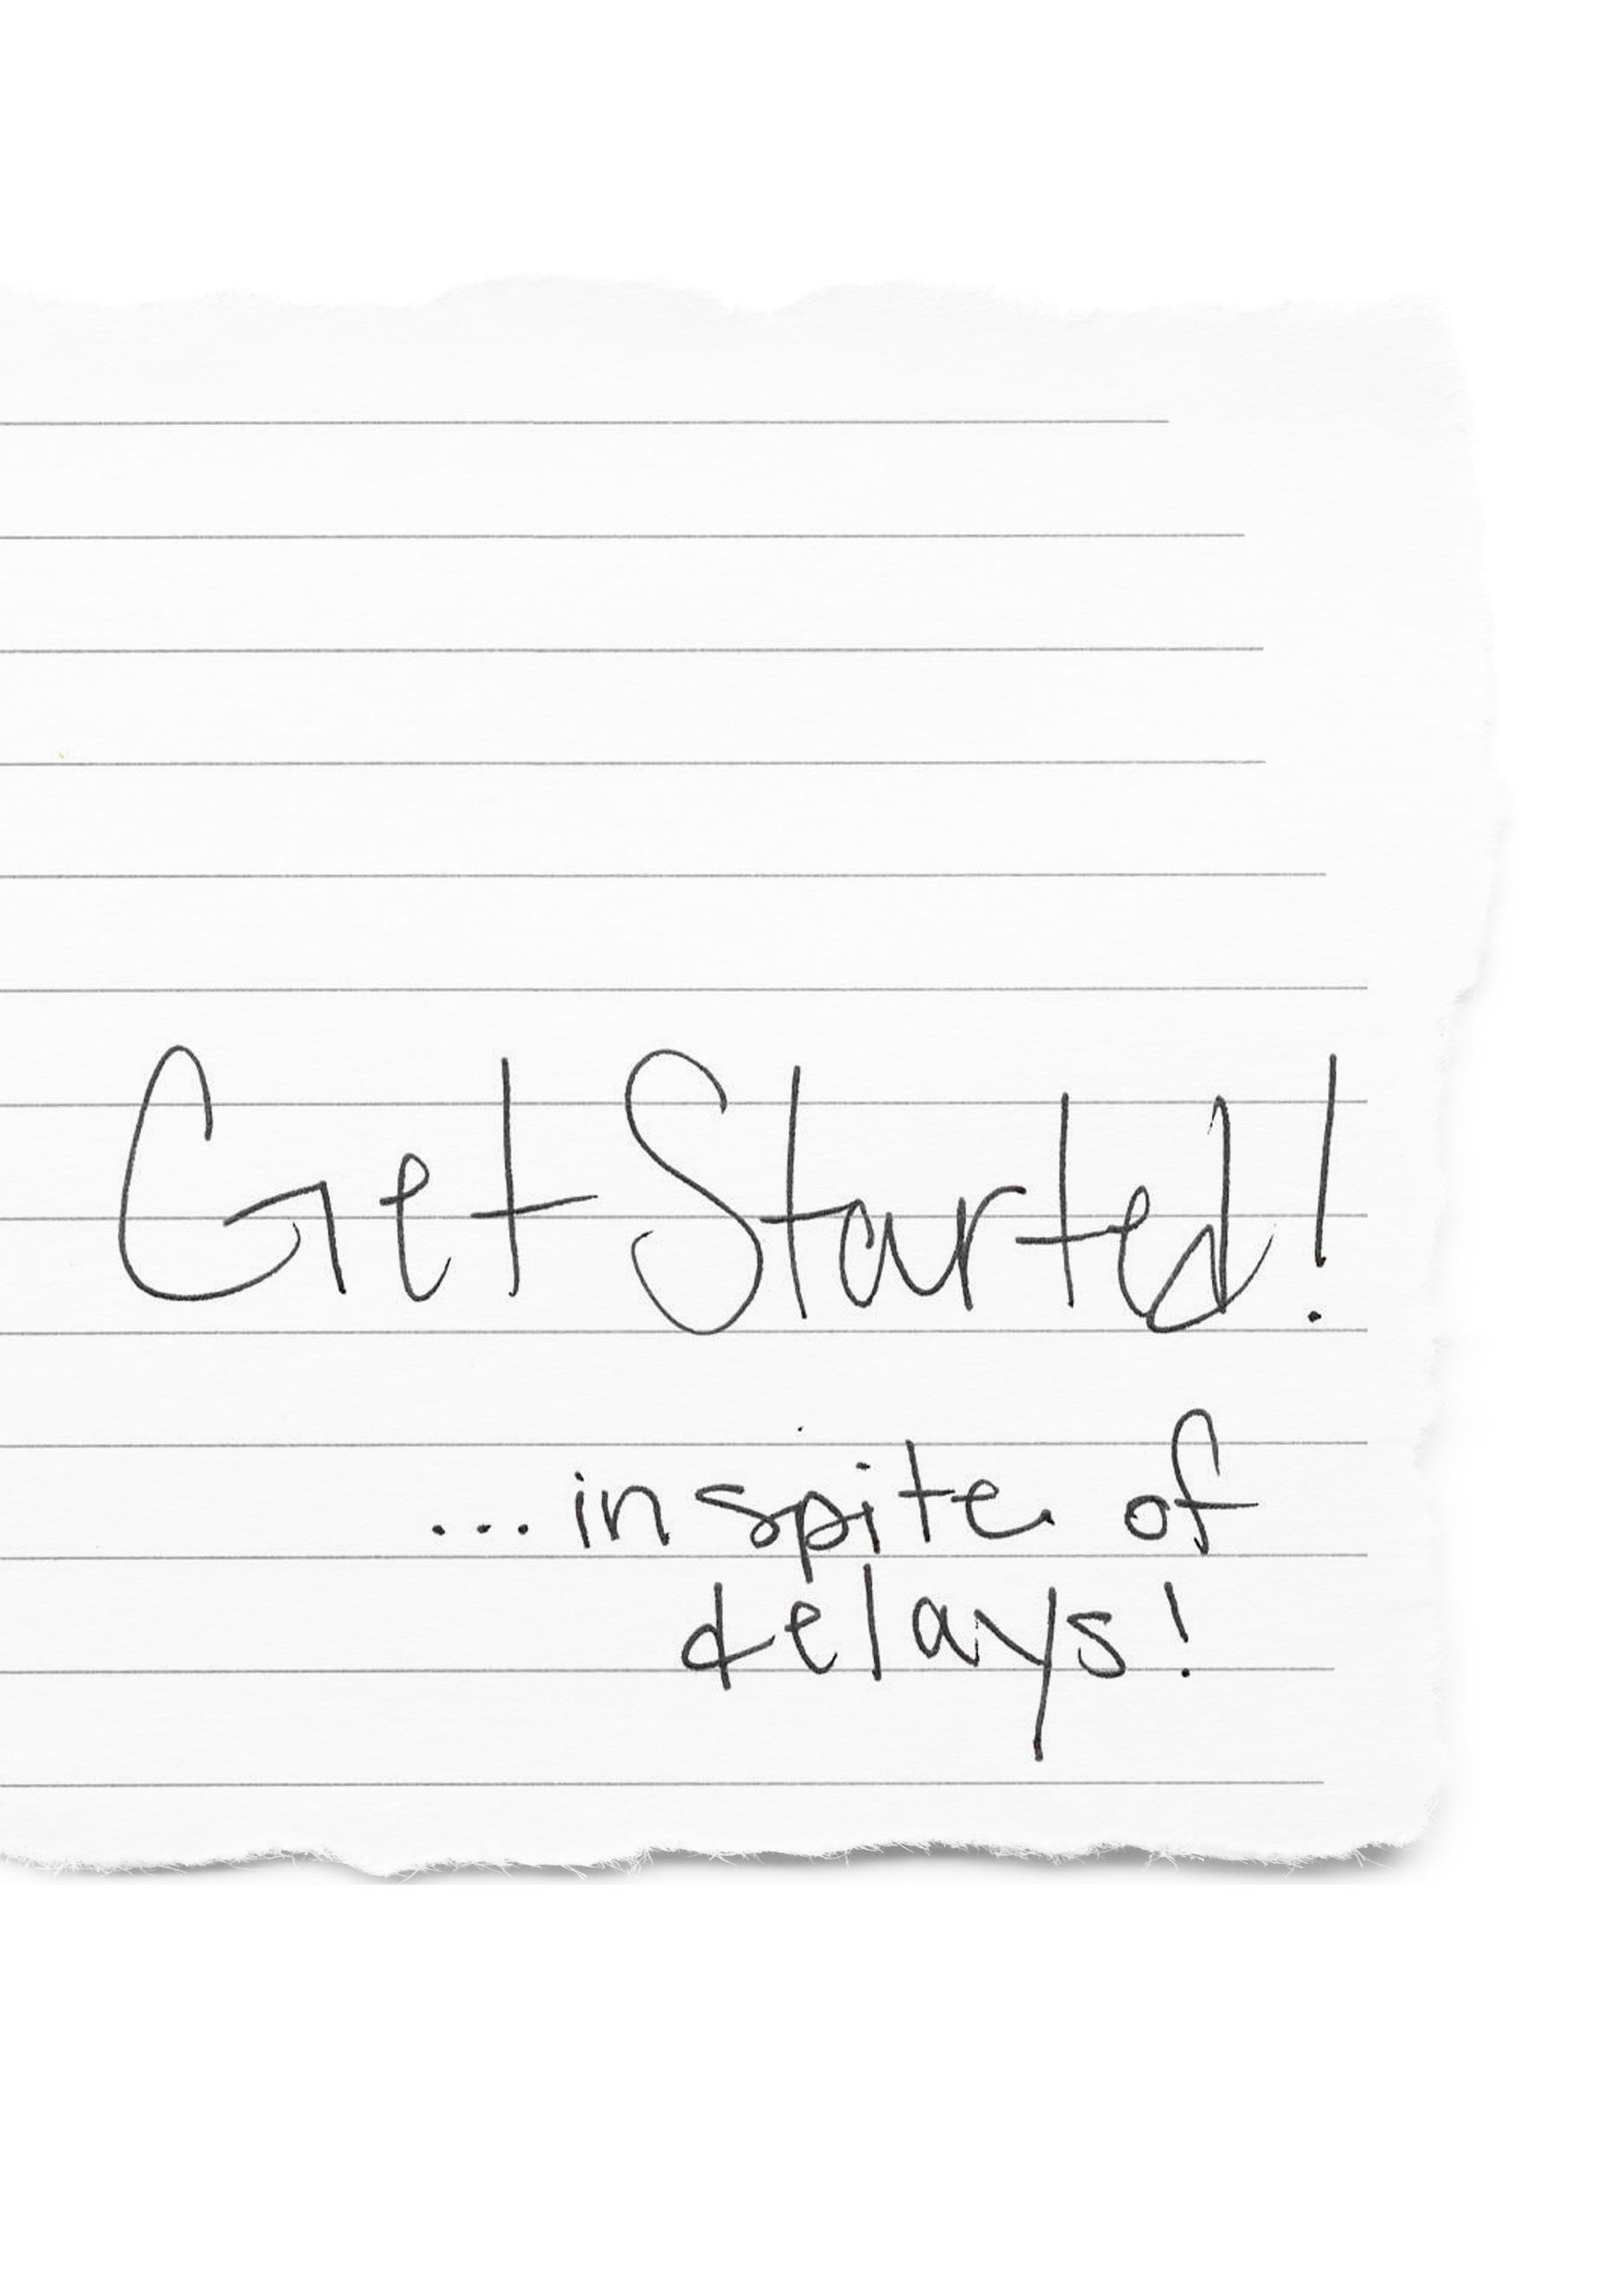 Get Started!
...in spite of
delays!